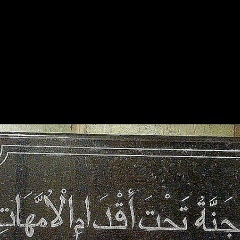 جَنَّةُ تَحْتَ أَقْدَامِ الْأُمَّهَاتِ